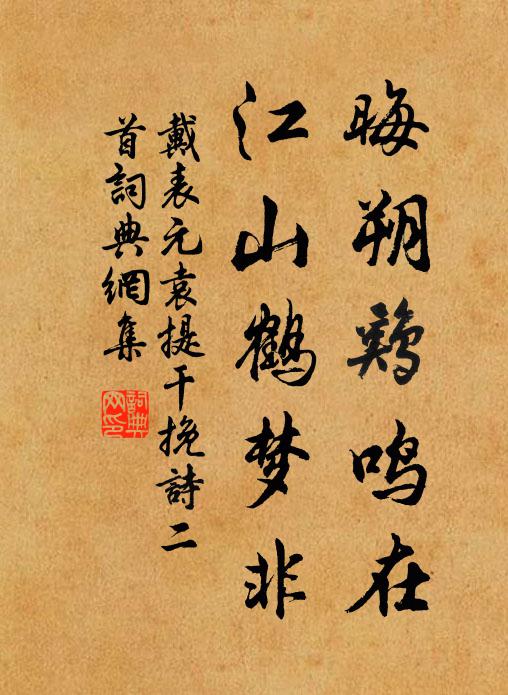 晦朔鸡鸣在
江山鹤梦非
戴表元袁提干挽詩二
首詞典網集
詞典
网印